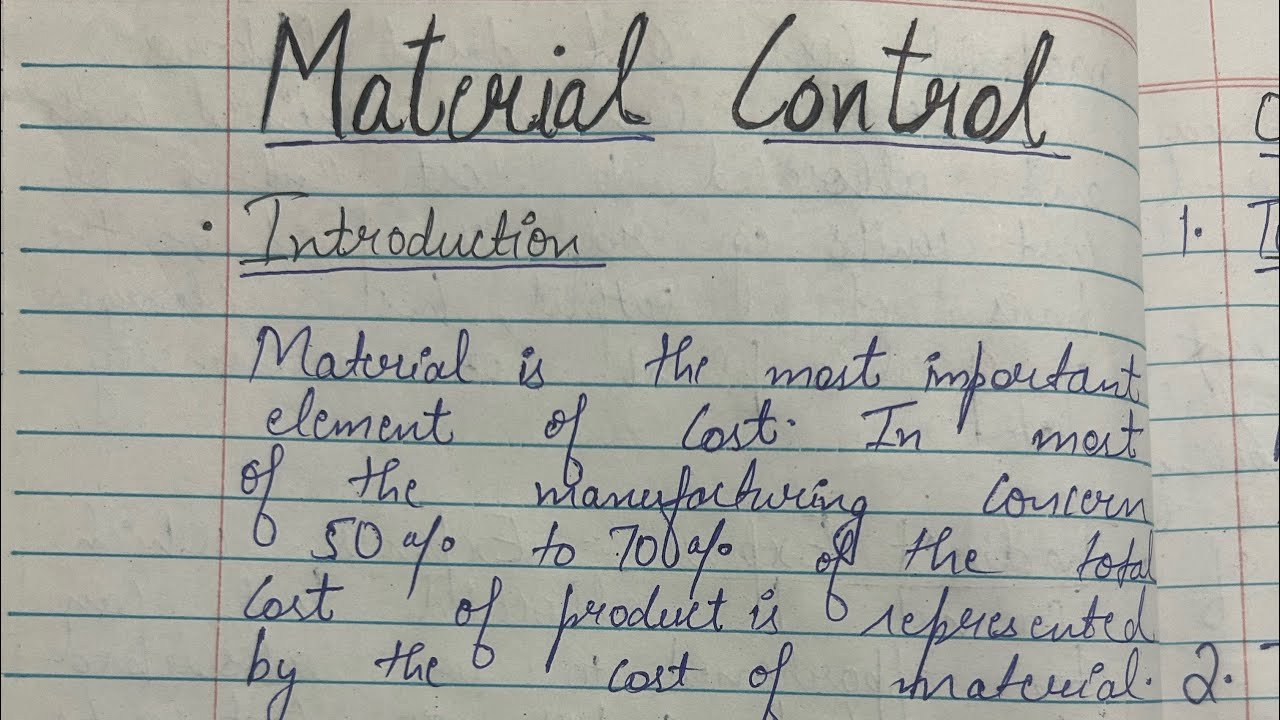 Material Control
· Introduction
Material is the most important
element of Cost. In most
of the manufacturing Concern
50% to 70% of the total
Cost of product is represented
by the cost of material.
1.
2.